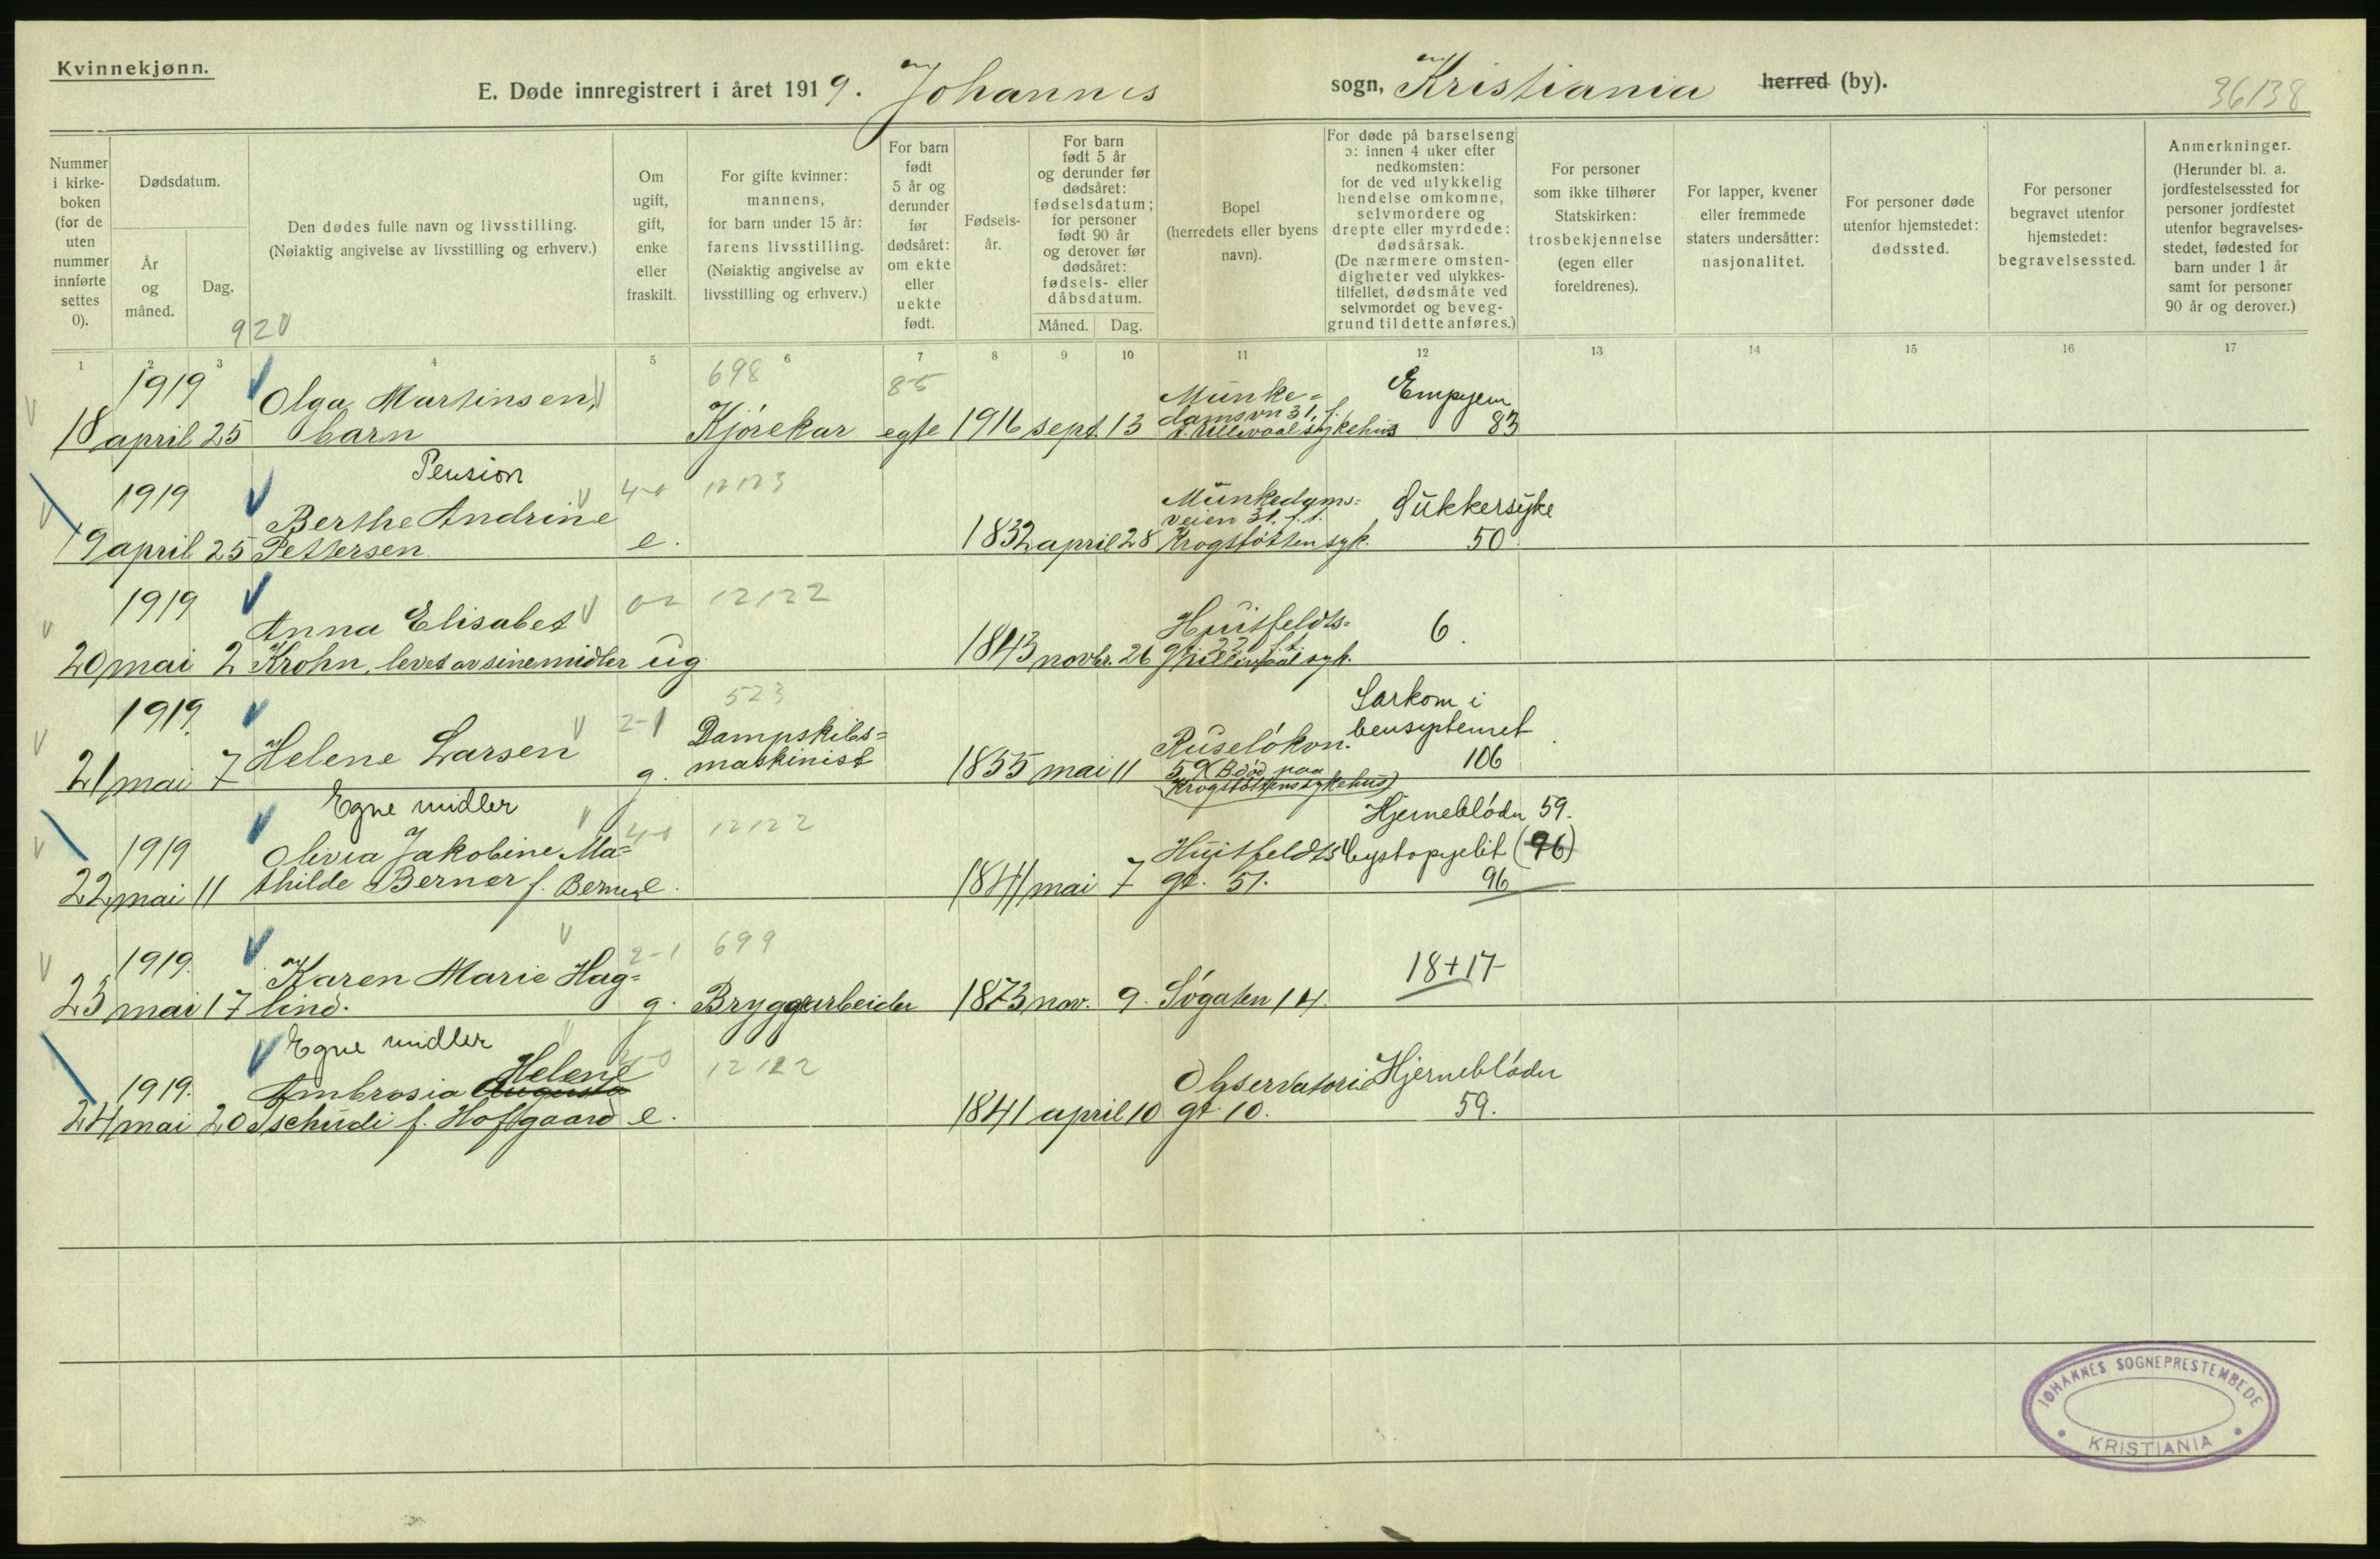 Kvinnekjønn.
E. Døde innregistrert i året 1919. Johannes sogn, Kristiania herred (by).
36138
Nummer i kirke-boken (for de uten nummer innførte settes 0).
Dødsdatum.
År og måned.
Dag.
Den dødes fulle navn og livsstilling.
(Nøiaktig angivelse av livsstilling og erhverv.)
Om ugift, gift, enke eller fraskilt.
For gifte kvinner: mannens, for barn under 15 år: farens livsstilling.
(Nøiaktig angivelse av livsstilling og erhverv.)
For barn født 5 år og derunder før dødsåret: om ekte eller uekte født.
Fødsels-år.
For barn født 5 år og derunder før dødsåret: fødselsdatum; for personer født 90 år og derover før dødsåret: fødsels- eller dåbsdatum.
Måned.
Dag.
Bopel
(herredets eller byens navn).
For døde på barselseng ɔ: innen 4 uker efter nedkomsten: for de ved ulykkelig hendelse omkomne, selvmordere og drepte eller myrdede: dødsårsak.
(De nærmere omsten-digheter ved ulykkes-tilfellet, dødsmåte ved selvmordet og beveg-grund til dette anføres.)
For personer som ikke tilhører Statskirken: trosbekjennelse (egen eller foreldrenes).
For lapper, kvener eller fremmede staters undersåtter: nasjonalitet.
For personer døde utenfor hjemstedet: dødssted.
For personer begravet utenfor hjemstedet: begravelsessted.
Anmerkninger.
(Herunder bl. a. jordfestelsessted for personer jordfestet utenfor begravelses-stedet, fødested for barn under 1 år samt for personer 90 år og derover.)
920
1 2 3 4 5 6 7 8 9 10 11 12 13 14 15 16 17
1919 698 85 Munke= Empyem
Olga Martinsen, damsvn 31, f.
18 april 25 barn Kjørekar egte 1916 sept. 13 t. Ullevaal sykehus 83
Pension
1919 4-0 12123 Munkedams= Sukkersyke
Berthe Andrine veien 31. f.t.
19 april 25 Pettersen e. 1832 april 28 Krogstøtten syk. 50.
1919 02 12122 Huitfeldts= 6.
Anna Elisabet gt 22 f.t.
20 mai 2 Krohn, levet av sine midler ug. 1843 novbr. 26 Ullevaal syk.
1919. 2-1 523 Sarkom i
Dampskibs= bensystemet
21 mai 7 Helene Larsen g. maskinist 1855 mai 11 Ruseløkvn. 106
5 B. død paa
Krogstøttens sykehus)
Egne midler Hjerneblødn 59.
1919 4-0 12122
Olivia Jakobine Ma= Huitfeldts Cystopyelit (96)
22 mai 11 thilde Berner f. Berner e. 1841 mai 7 gt. 51. 96
1919. 2-1 699 18+17
Karen Marie Hag=
23 mai 17 lind. g. Bryggearbeider 1873 nov. 9. Søgaten 14.
Egne midler
Helene 4-0 12122
1919. Ambrosia Augusta Observatorie Hjerneblødn
24 mai 20 Tschudi f. Hoffgaard e. 1841 april 10 gt. 10. 59.
JOHANNES SOGNEPRESTEMBEDE
• KRISTIANIA •